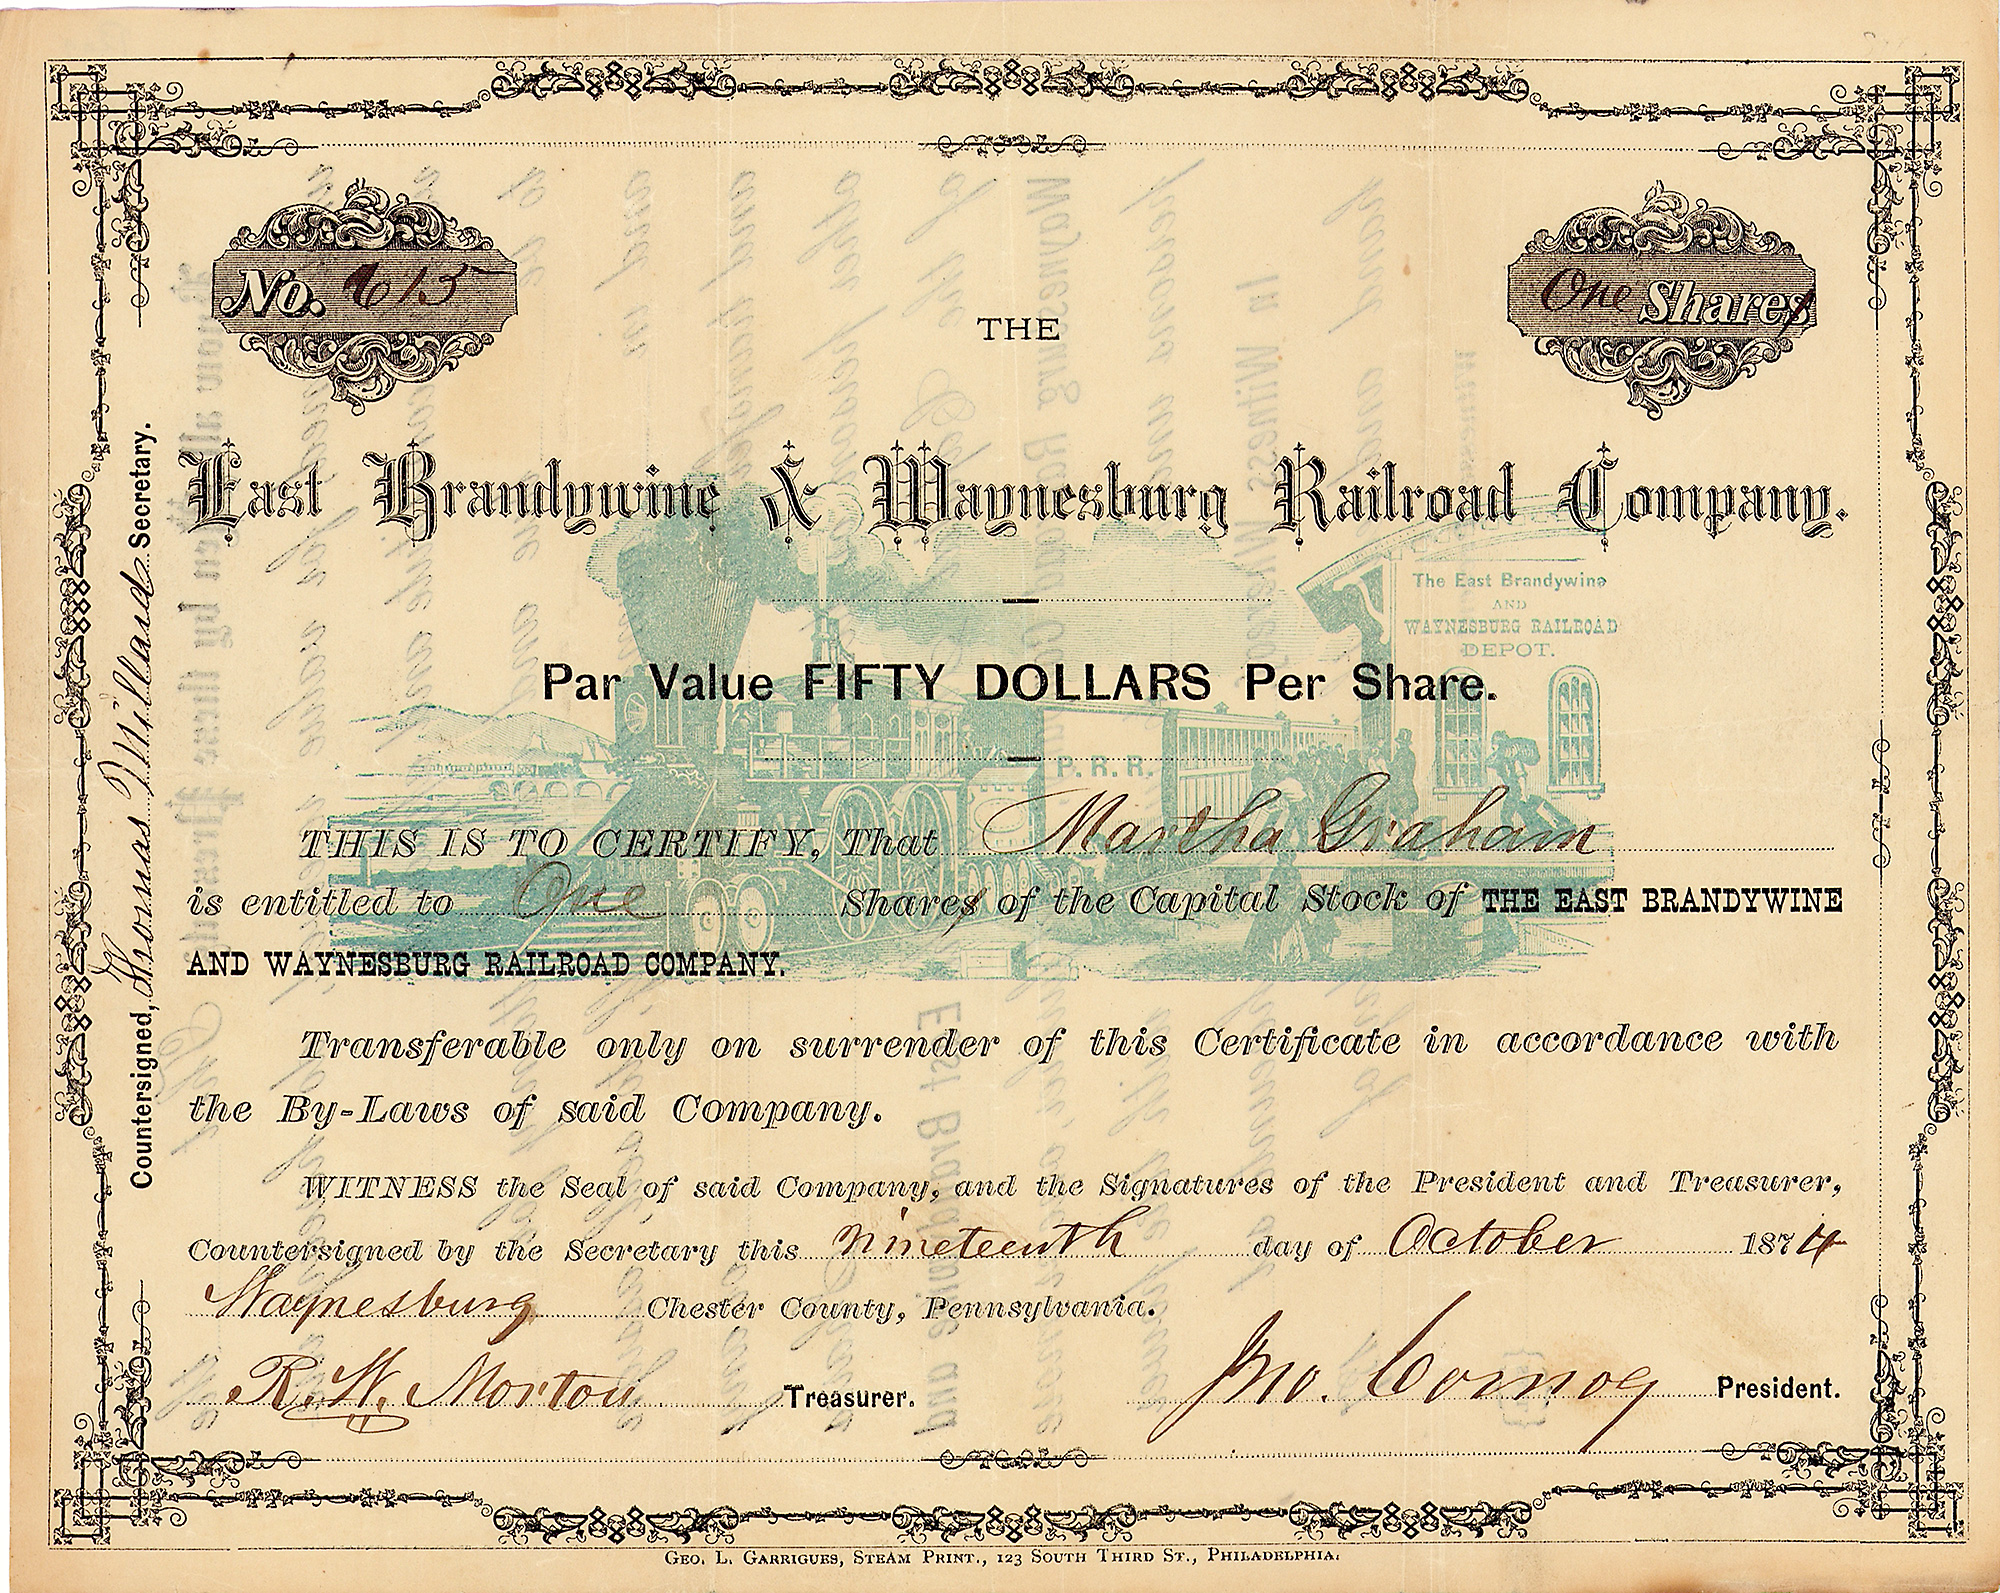 No. 615
One Shares
THE
East Brandywine & Waynesburg Railroad Company.
The East Brandywine
AND
WAYNESBURG RAILROAD
DEPOT.
Par Value FIFTY DOLLARS Per Share.
P. R. R.
THIS IS TO CERTIFY, That Martha Graham
is entitled to One Shares of the Capital Stock of THE EAST BRANDYWINE
AND WAYNESBURG RAILROAD COMPANY.
Transferable only on surrender of this Certificate in accordance with
the By-Laws of said Company.
WITNESS the Seal of said Company, and the Signatures of the President and Treasurer,
Countersigned by the Secretary this nineteenth day of October 1874
Waynesburg Chester County, Pennsylvania.
R. W. Morton Treasurer. Jno. Cornog President.
Countersigned, Thomas Millard Secretary.
GEO. L. GARRIGUES, STEAM PRINT., 123 SOUTH THIRD ST., PHILADELPHIA.